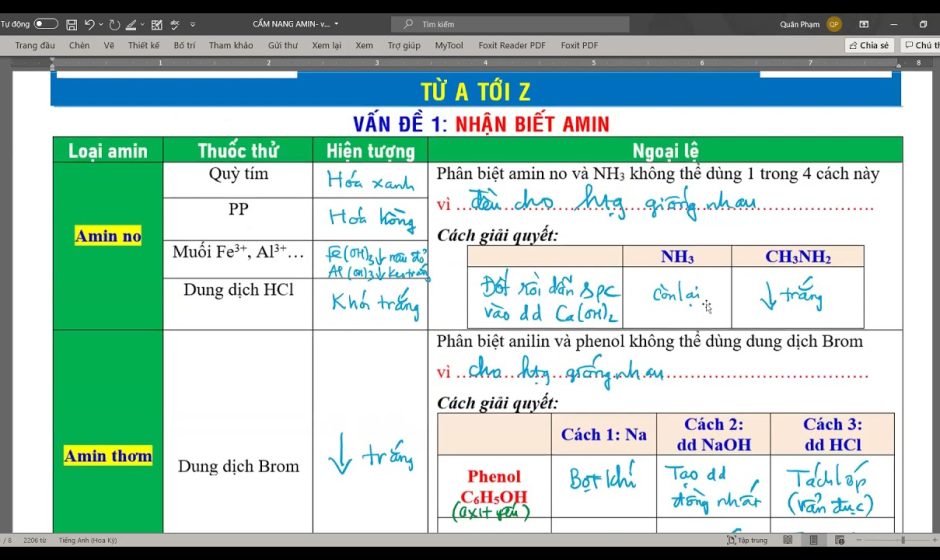 Tự động
CẨM NANG AMIN- v...
Tìm kiếm
Quân Phạm
QP
Trang đầu Chèn Vẽ Thiết kế Bố trí Tham khảo Gửi thư Xem lại Xem Trợ giúp MyTool Foxit Reader PDF Foxit PDF
Chia sẻ
1 2 3 4 5 6 7 8
TỪ A TỚI Z
VẤN ĐỀ 1: NHẬN BIẾT AMIN
Loại amin Thuốc thử Hiện tượng Ngoại lệ
Amin no
Quỳ tím
Hóa xanh
PP
Hoá hồng
Muối Fe³⁺, Al³⁺…
Fe(OH)₃↓ nâu đỏ
Al(OH)₃↓ keo trắng
Dung dịch HCl
Khói trắng
Phân biệt amin no và NH₃ không thể dùng 1 trong 4 cách này
vì ...đều cho htg giống nhau
Cách giải quyết:
NH₃ CH₃NH₂
Đốt rồi dẫn spc
vào dd Ca(OH)₂
còn lại
↓ trắng
Amin thơm
Dung dịch Brom
↓ trắng
Phân biệt anilin và phenol không thể dùng dung dịch Brom
vì ...cho htg giống nhau
Cách giải quyết:
Cách 1: Na
Cách 2:
dd NaOH
Cách 3:
dd HCl
Phenol
C₆H₅OH
(axit yếu)
Bọt khí
Tạo dd
đồng nhất
Tách lớp
(vẩn đục)
/ 8 2206 từ Tiếng Anh (Hoa Kỳ)
Tập trung